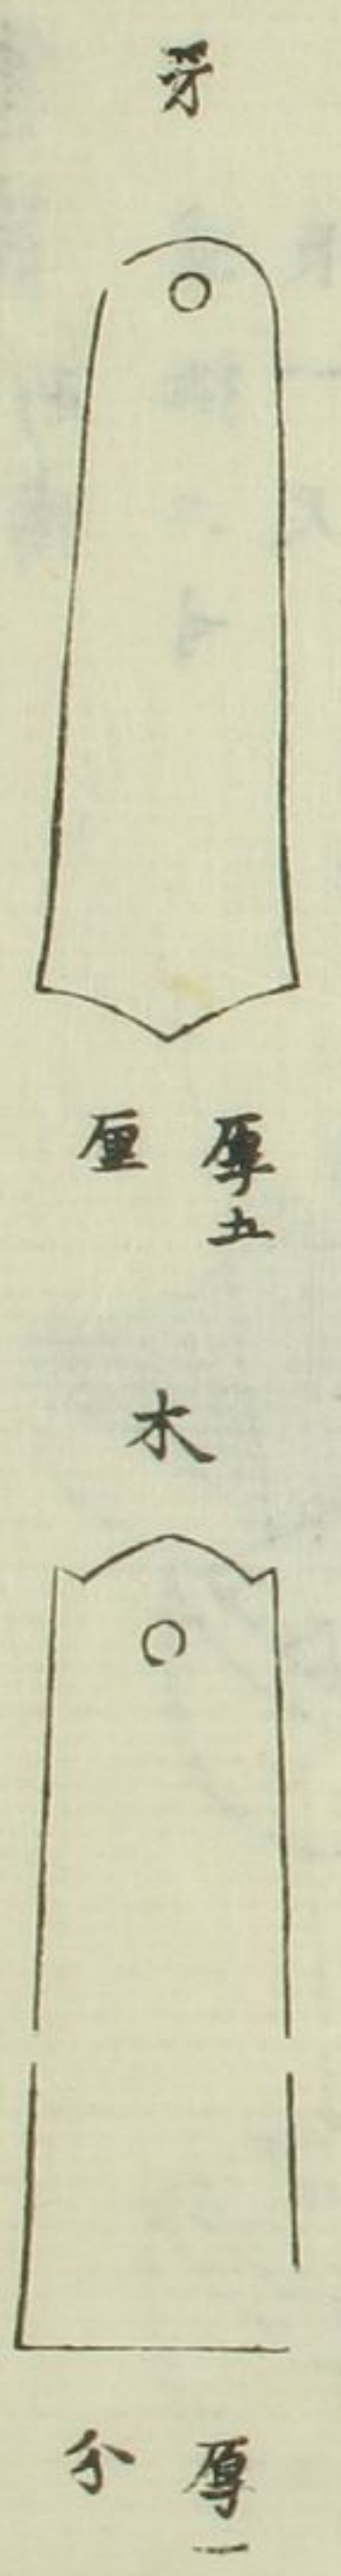 牙
厚五
厘
木
厚一
分